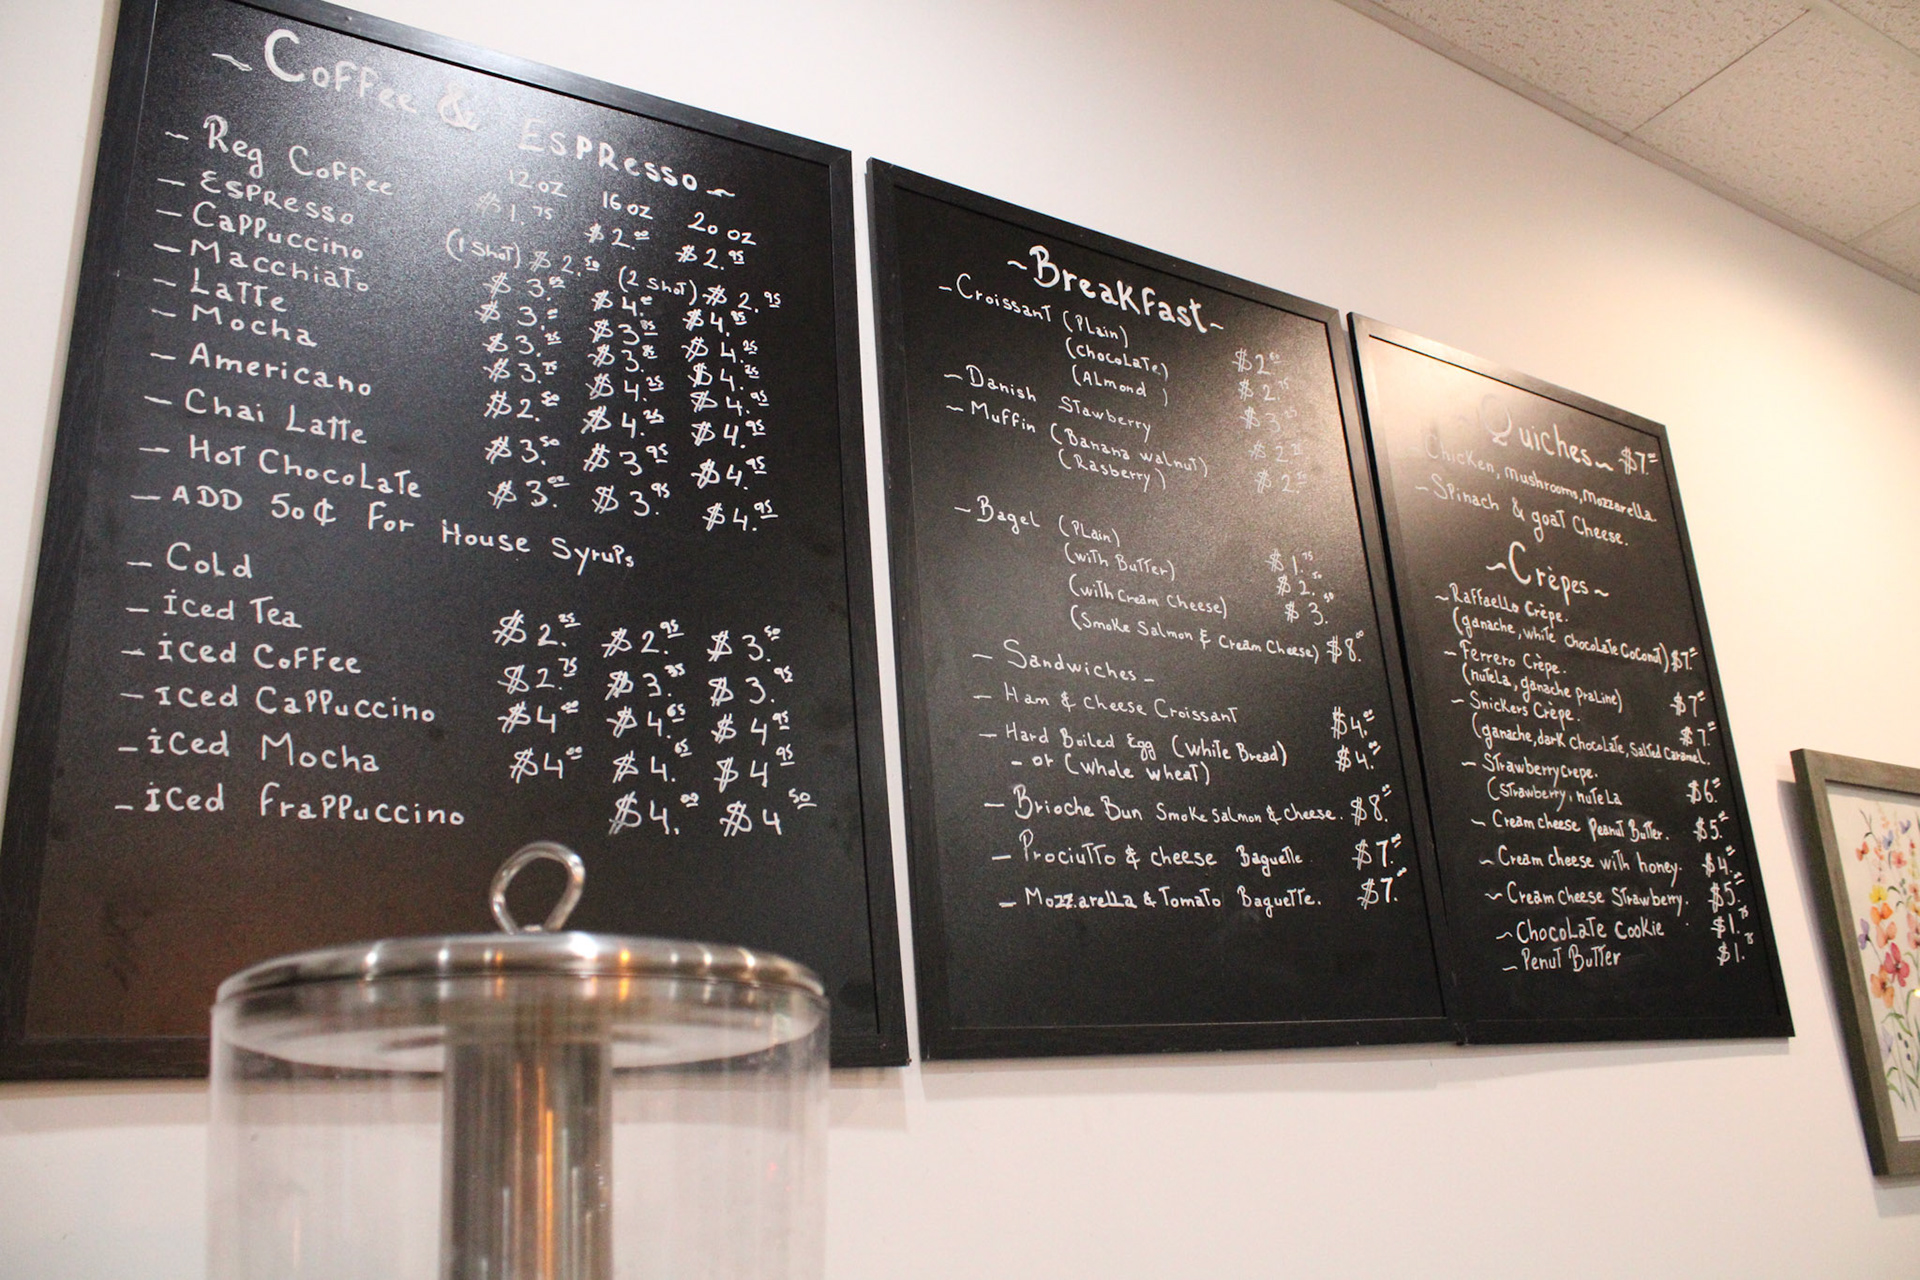 ~ Coffee & Espresso ~
12oz 16oz 20oz
~ Reg Coffee $1.75 $2.00 $2.95
- Espresso (1 Shot) $2.50 (2 Shot) $2.95
- Cappuccino $3.00 $4.00 $4.95
- Macchiato $3.00 $3.95 $4.25
- Latte $3.25 $3.85 $4.25
- Mocha $3.75 $4.25 $4.95
- Americano $2.50 $4.25 $4.95
- Chai Latte $3.50 $3.95 $4.95
- Hot Chocolate $3.00 $3.95 $4.95
- ADD 50¢ For House Syrups
- Cold
- iced Tea $2.25 $2.95 $3.50
- iced Coffee $2.75 $3.35 $3.95
- iced Cappuccino $4.00 $4.65 $4.95
- iced Mocha $4.00 $4.65 $4.95
- iced frappuccino $4.00 $4.50
~Breakfast~
- Croissant (Plain) $2.50
(chocolate) $2.75
(Almond) $3.25
- Danish Stawberry $2.25
- Muffin (Banana walnut) $2.50
(Rasberry)
- Bagel (Plain) $1.75
(with Butter) $2.50
(with Cream Cheese) $3.50
(Smoke Salmon & Cream Cheese) $8.00
- Sandwiches -
- Ham & cheese Croissant $4.00
- Hard Boiled Egg (White Bread) $4.00
- or (whole wheat)
- Brioche Bun Smoke Salmon & cheese. $8.00
- Prociutto & cheese Baguette $7.00
- Mozzarella & Tomato Baguette. $7.00
~ Quiches ~ $7.00
Chicken, mushrooms, Mozzarella.
- Spinach & goat Cheese.
~Crèpes~
~ Raffaello Crèpe.
(ganache, white chocolate Coconut) $7.00
- Ferrero Crèpe.
(nutela, ganache praline) $7.00
- Snickers Crèpe. $7.00
(ganache, dark chocolate, Salted Caramel.
- Strawberry crepe.
(strawberry, nutela $6.00
- Cream cheese Peanut Butter. $5.00
~ Cream cheese with honey. $4.00
~ Cream cheese Strawberry. $5.00
~ Chocolate Cookie $1.75
- Penut Butter $1.75